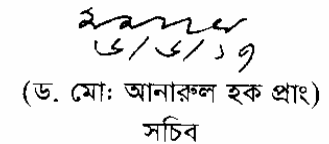 ৬/৬/১৭
(ড. মোঃ আনারুল হক প্রাং)
সচিব